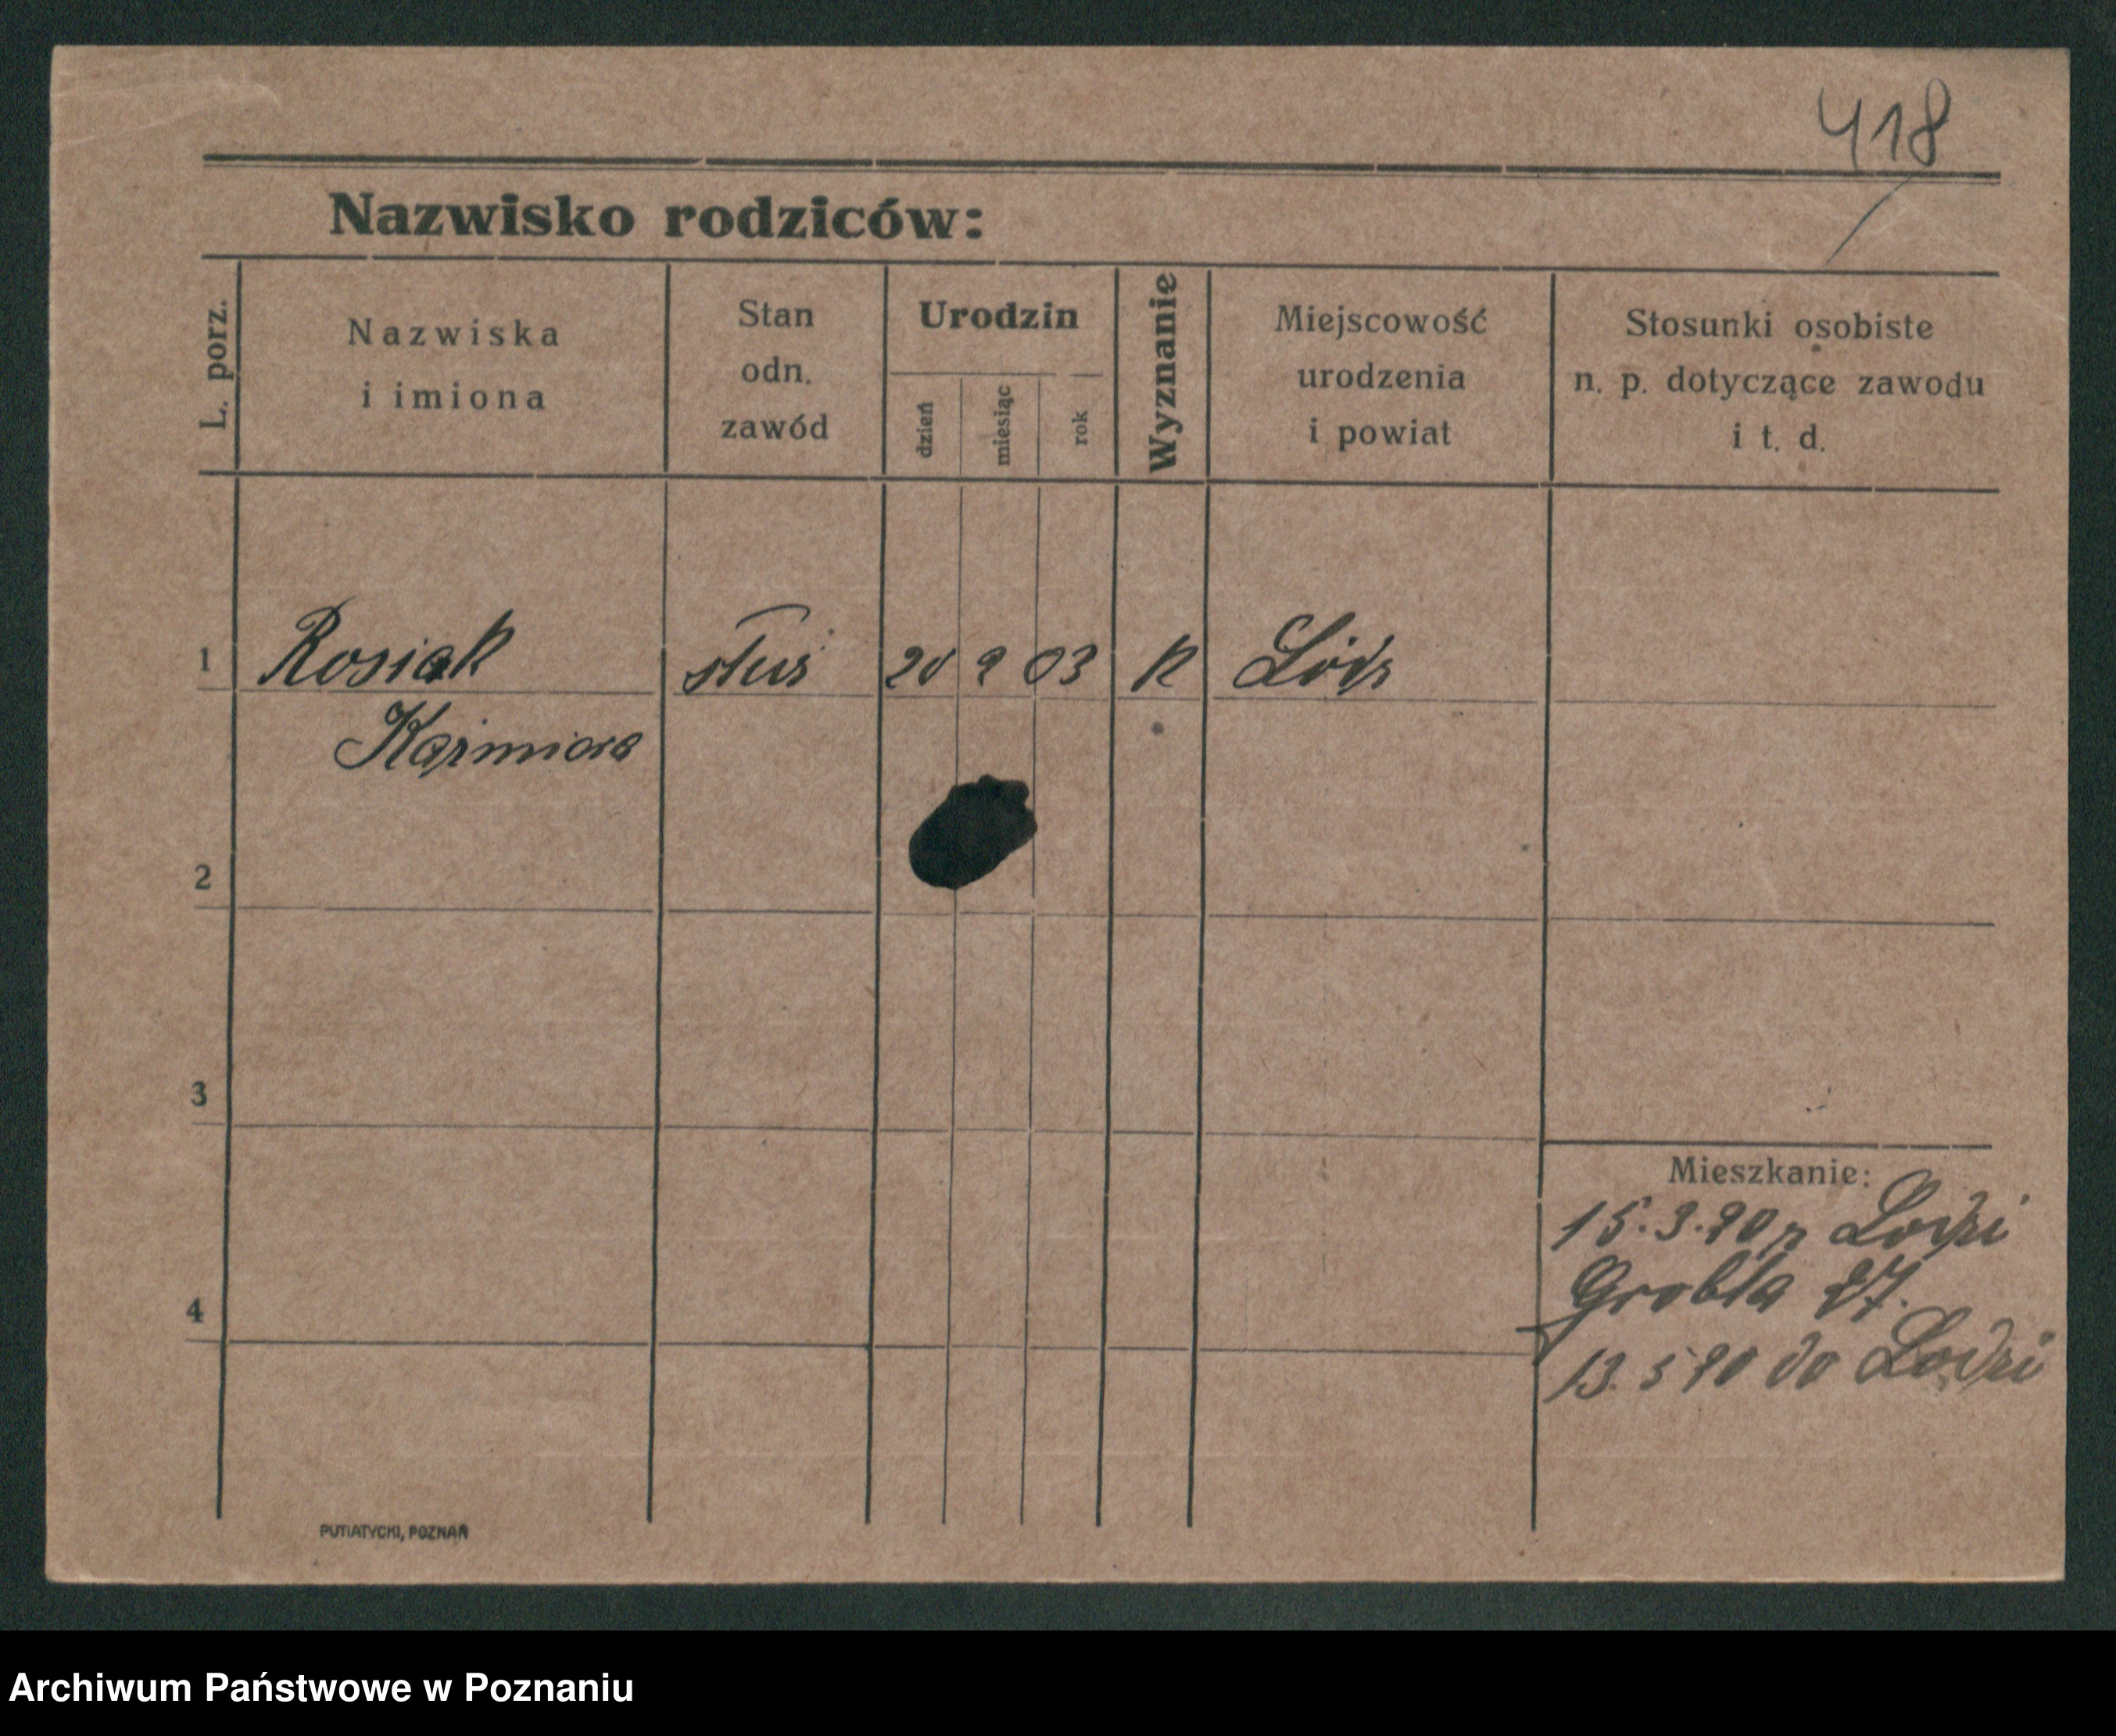 418
Nazwisko rodziców:
L. porz.
Nazwiska
i imiona
Stan
odn.
zawód
Urodzin
dzień
miesiąc
rok
Wyznanie
Miejscowość
urodzenia
i powiat
Stosunki osobiste
n. p. dotyczące zawodu
i t. d.
1 Rosiak służ 20 2 03 K Łódź
Kazimiera
2
3
4
Mieszkanie:
15.3.20 z Łodzi
Grobla 27.
13.5 20 do Łodzi
PUTIATYCKI, POZNAŃ
Archiwum Państwowe w Poznaniu